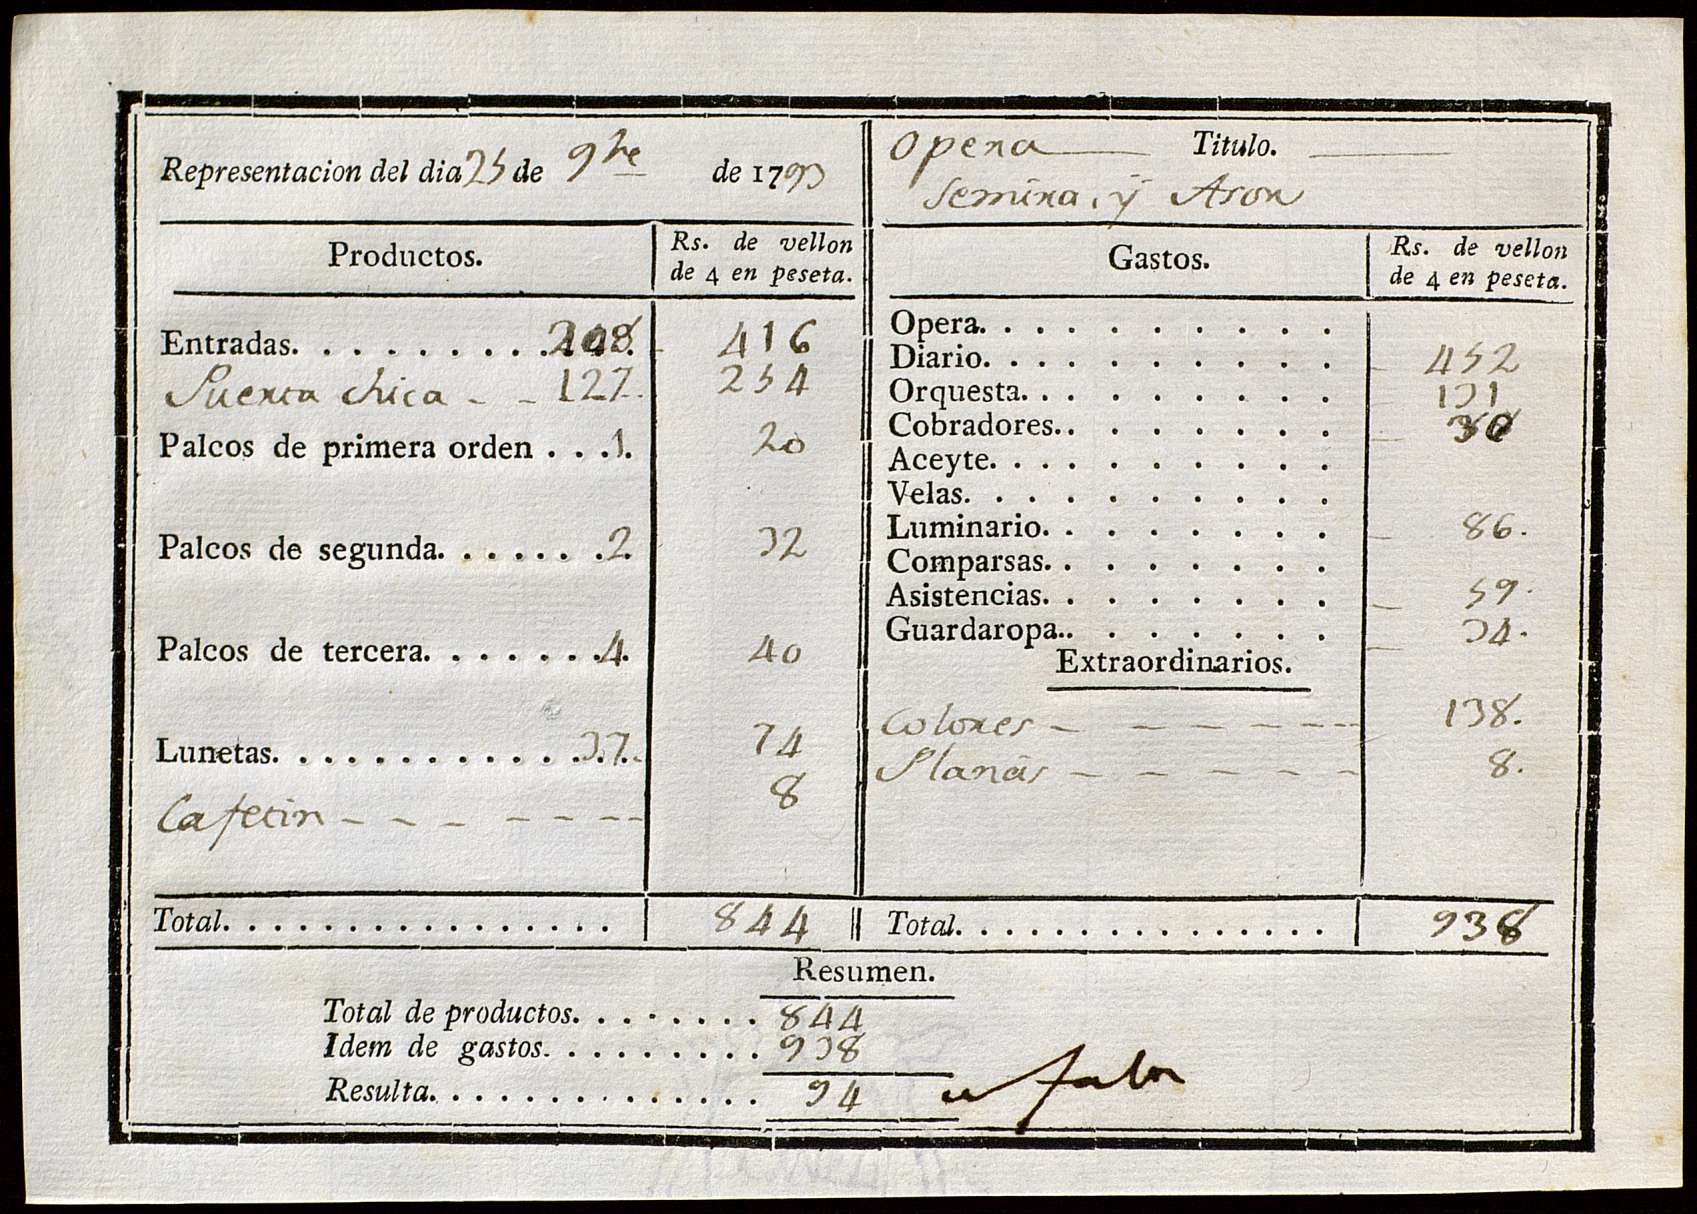 Representacion del dia 25 de 9bre de 1793
Productos. Rs. de vellon de 4 en peseta.
Entradas. . . . . . . . . . 208. 416
Puerta chica - - 127. 254
Palcos de primera orden . . . 1. 20
Palcos de segunda. . . . . . . 2. 32
Palcos de tercera. . . . . . . 4. 40
Lunetas. . . . . . . . . . . . 37. 74
Cafetin - - - - - - - 8
Total. . . . . . . . . . . . . . . . 844
Opera Titulo.
Semira, y Ason
Gastos. Rs. de vellon de 4 en peseta.
Opera. . . . . . . . . . .
Diario. . . . . . . . . . . 452
Orquesta. . . . . . . . . . 131
Cobradores. . . . . . . . . 30
Aceyte. . . . . . . . . . .
Velas. . . . . . . . . . .
Luminario. . . . . . . . . 86.
Comparsas. . . . . . . . .
Asistencias. . . . . . . . . 59.
Guardaropa. . . . . . . . . 34.
Extraordinarios.
Colores - - - - - - - 138.
Planas - - - - - - 8.
Total. . . . . . . . . . . . . . . . 938
Resumen.
Total de productos. . . . . . . . 844
Idem de gastos. . . . . . . . . . 938
Resulta. . . . . . . . . . . . . . 94